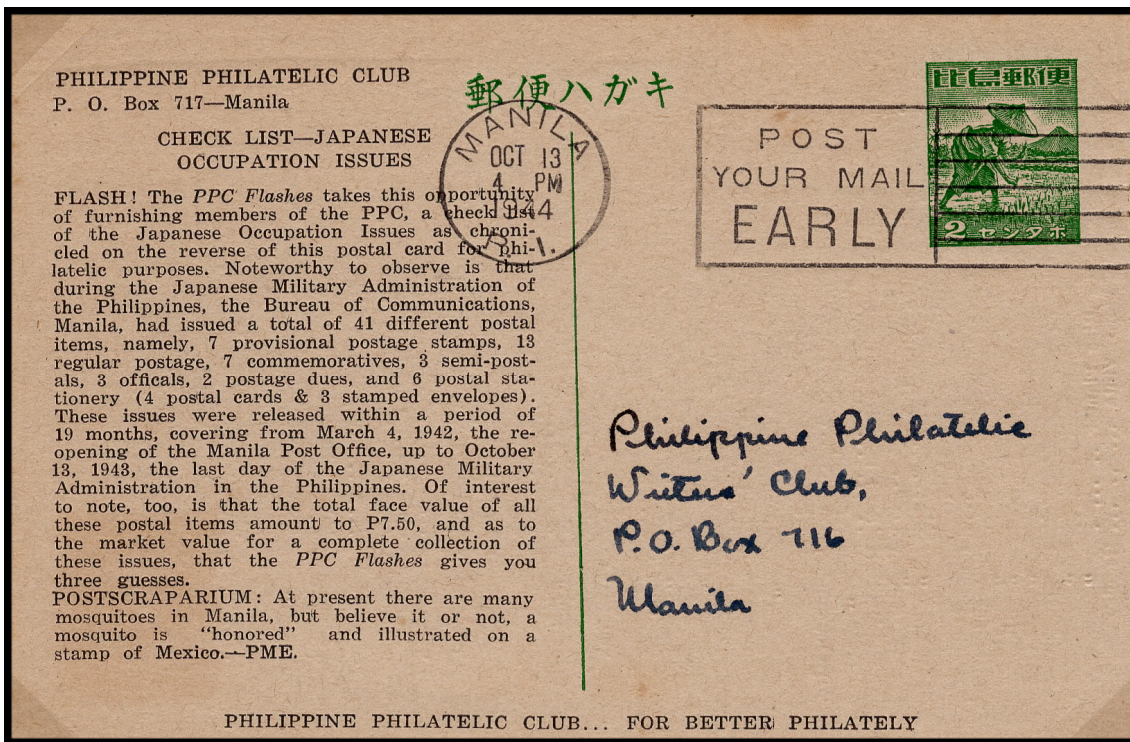 PHILIPPINE PHILATELIC CLUB
P. O. Box 717—Manila
CHECK LIST—JAPANESE
OCCUPATION ISSUES
FLASH! The PPC Flashes takes this opportunity
of furnishing members of the PPC, a check list
of the Japanese Occupation Issues as chroni-
cled on the reverse of this postal card for phi-
latelic purposes. Noteworthy to observe is that
during the Japanese Military Administration of
the Philippines, the Bureau of Communications,
Manila, had issued a total of 41 different postal
items, namely, 7 provisional postage stamps, 13
regular postage, 7 commemoratives, 3 semi-post-
als, 3 officals, 2 postage dues, and 6 postal sta-
tionery (4 postal cards & 3 stamped envelopes).
These issues were released within a period of
19 months, covering from March 4, 1942, the re-
opening of the Manila Post Office, up to October
13, 1943, the last day of the Japanese Military
Administration in the Philippines. Of interest
to note, too, is that the total face value of all
these postal items amount to P7.50, and as to
the market value for a complete collection of
these issues, that the PPC Flashes gives you
three guesses.
POSTSCRAPARIUM: At present there are many
mosquitoes in Manila, but believe it or not, a
mosquito is "honored" and illustrated on a
stamp of Mexico.—PME.
郵便ハガキ
MANILA
OCT 13
4 PM
1944
P. I.
POST
YOUR MAIL
EARLY
比島郵便
2 センタボ
Philippine Philatelic
Writers' Club,
P.O. Box 716
Manila
PHILIPPINE PHILATELIC CLUB... FOR BETTER PHILATELY